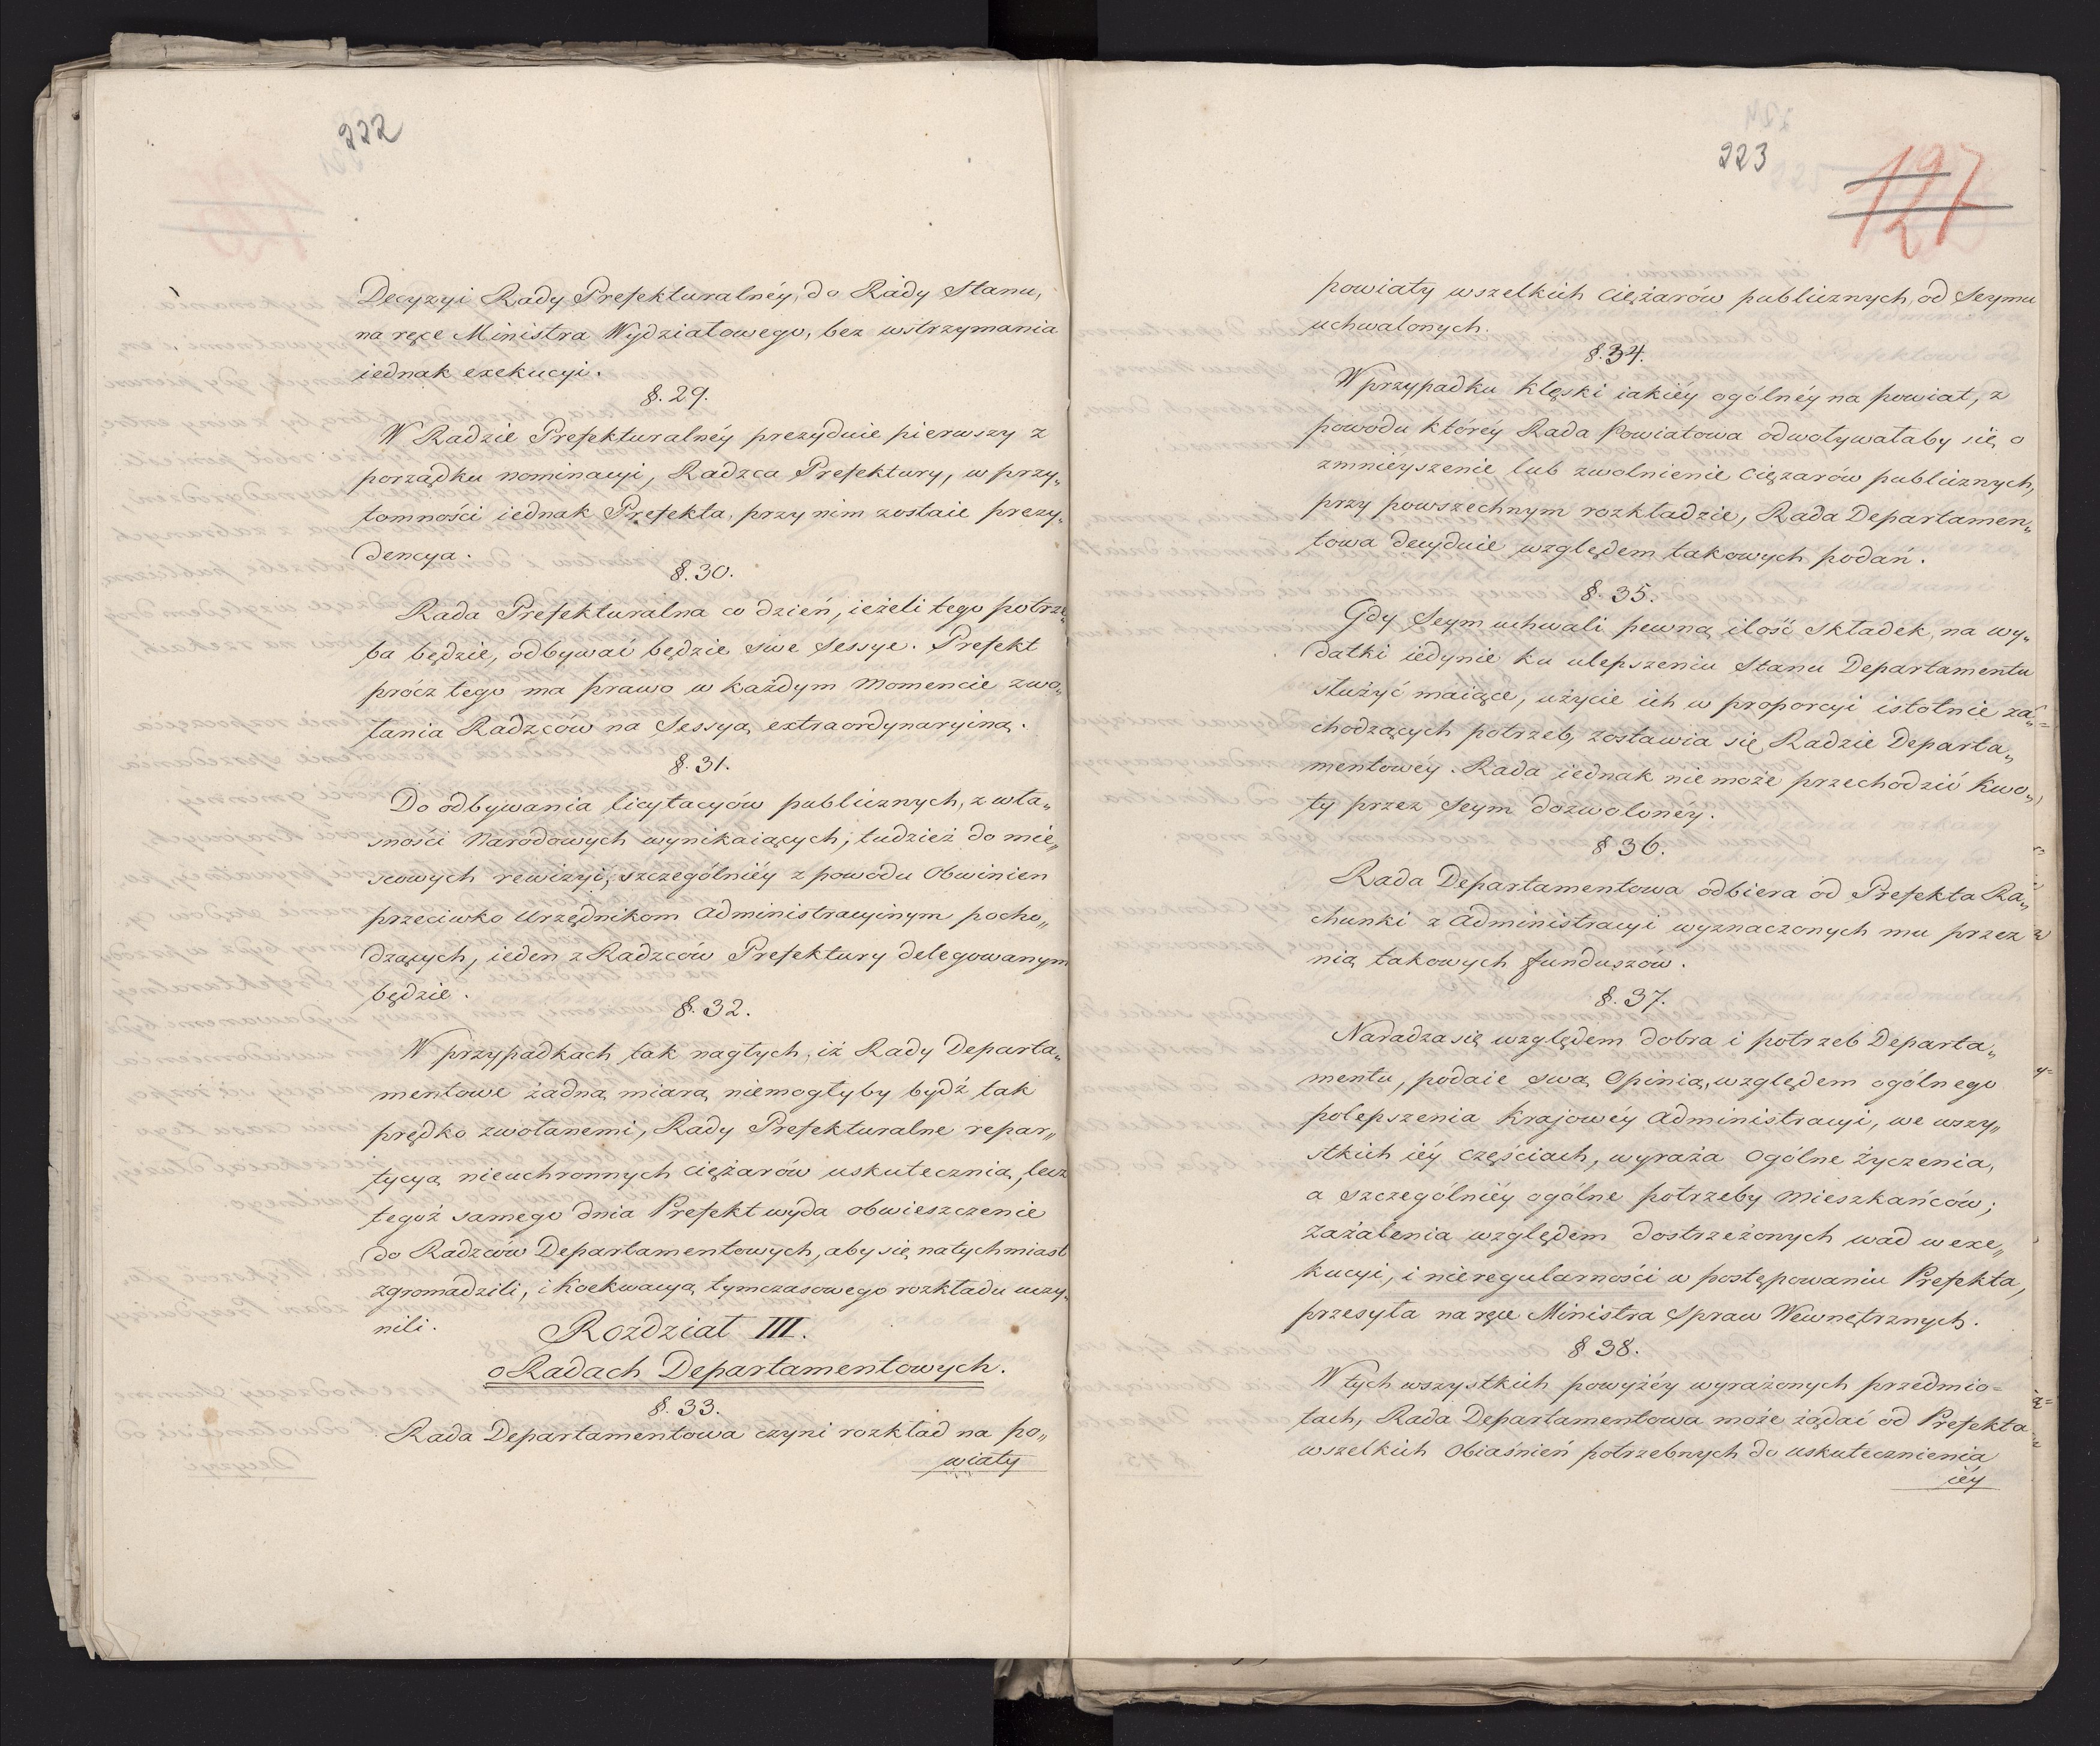 222
Decyzyi Rady Prefekturalnéy, do Rady Stanu,
na ręce Ministra Wydziałowego, bez wstrzymania
iednak exekucyi.
§. 29.
W Radzie Prefekturalnéy prezyduie pierwszy z
porządku nominacyi, Radzca Prefektury, w przy„
tomności iednak Prefekta, przy nim zostaie prezy„
dencya.
§. 30.
Rada Prefekturalna co dzień, ieżeli tego potrze„
ba będzie, odbywać będzie swe Sessye. Prefekt
prócz tego ma prawo w każdym momencie zwo„
łania Radzców na Sessyą extraordynaryiną.
§. 31.
Do odbywania licytacyów publicznych, z wła„
sności Narodowych wynikaiących, tudzież do miey„
scowych rewizyi, szczególniéy z powodu Obwinien
przeciwko Urzędnikom Administracyinym pocho„
dzących, ieden z Radzców Prefektury delegowanym
będzie.
§. 32.
W przypadkach tak nagłych, iż Rady Departa„
mentowe żadną miarą niemogłyby bydź tak
prędko zwołanemi, Rady Prefekturalne repar„
tycyą nieuchronnych ciężarów uskutecznią, lecz
tegoż samego dnia Prefekt wyda obwieszczenie
do Radzców Departamentowych, aby się natychmiast
zgromadzili, i Koekwacyą tymczasowego rozkładu uczy„
nili.
Rozdział III.
o Radach Departamentowych.
§. 33.
Rada Departamentowa czyni rozkład na po„
wiaty
223
127
powiaty wszelkich ciężarów publicznych, od Seymu
uchwalonych.
§. 34.
W przypadku klęski iakiéy ogólnéy na powiat, z
powodu któréy Rada Powiatowa odwoływałaby się o
zmniéyszenie lub zwolnienie ciężarów publicznych,
przy powszechnym rozkładzie, Rada Departamen„
towa decyduie względem takowych podań.
§. 35.
Gdy Seym uchwali pewną ilość składek, na wy„
datki iedynie ku ulepszeniu Stanu Departamentu
służyć maiące, użycie ich w proporcyi istotnie za„
chodzących potrzeb, zostawia się Radzie Departa„
mentowéy. Rada iednak nie może przechodzić kwo„
ty przez Seym dozwolonéy.
§ 36.
Rada Departamentowa odbiera od Prefekta Ra„
chunki z Administracyi wyznaczonych mu przez
nią takowych funduszów.
§. 37.
Naradza się względem dobra i potrzeb Departa„
mentu, podaie swą Opinią, względem ogólnego
polepszenia Krajowéy Administracyi, we wszy„
stkich iéy częściach, wyraża Ogólne życzenia,
a szczególniéy ogólne potrzeby Mieszkańców;
zażalenia względem dostrzeżonych wad w exe„
kucyi, i nieregularności w postępowaniu Prefekta,
przesyła na ręce Ministra Spraw Wewnętrznych.
§ 38.
W tych wszystkich powyżéy wyrażonych przedmio=
tach, Rada Departamentowa może żądać od Prefekta
wszelkich Obiaśnień potrzebnych do uskutecznienia
iéy